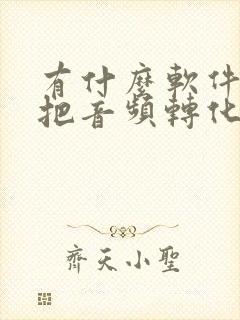 有什麼軟件
把音頻轉化
齊天小聖